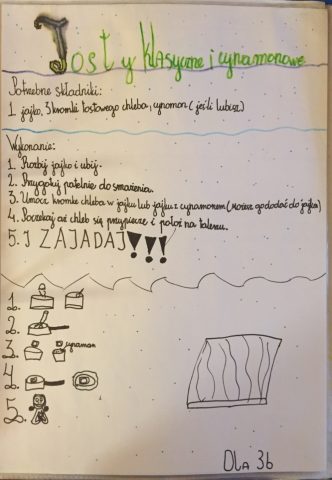 Tosty klasyczne i cynamonowe
Potrzebne składniki:
1 jajko, 3 kromki tostowego chleba, cynamon (jeśli lubisz)
Wykonanie:
1. Rozbij jajko i ubij.
2. Przygotuj patelnie do smażenia.
3. Umocz kromke chleba w jajku lub jajku z cynamonem (Możesz go dodać do jajka)
4. Poczekaj aż chleb się przypiecze i połóż na talerzu.
5. I ZAJADAJ!!!
1.
2.
3. cynamon
4.
5.
Dla 3b